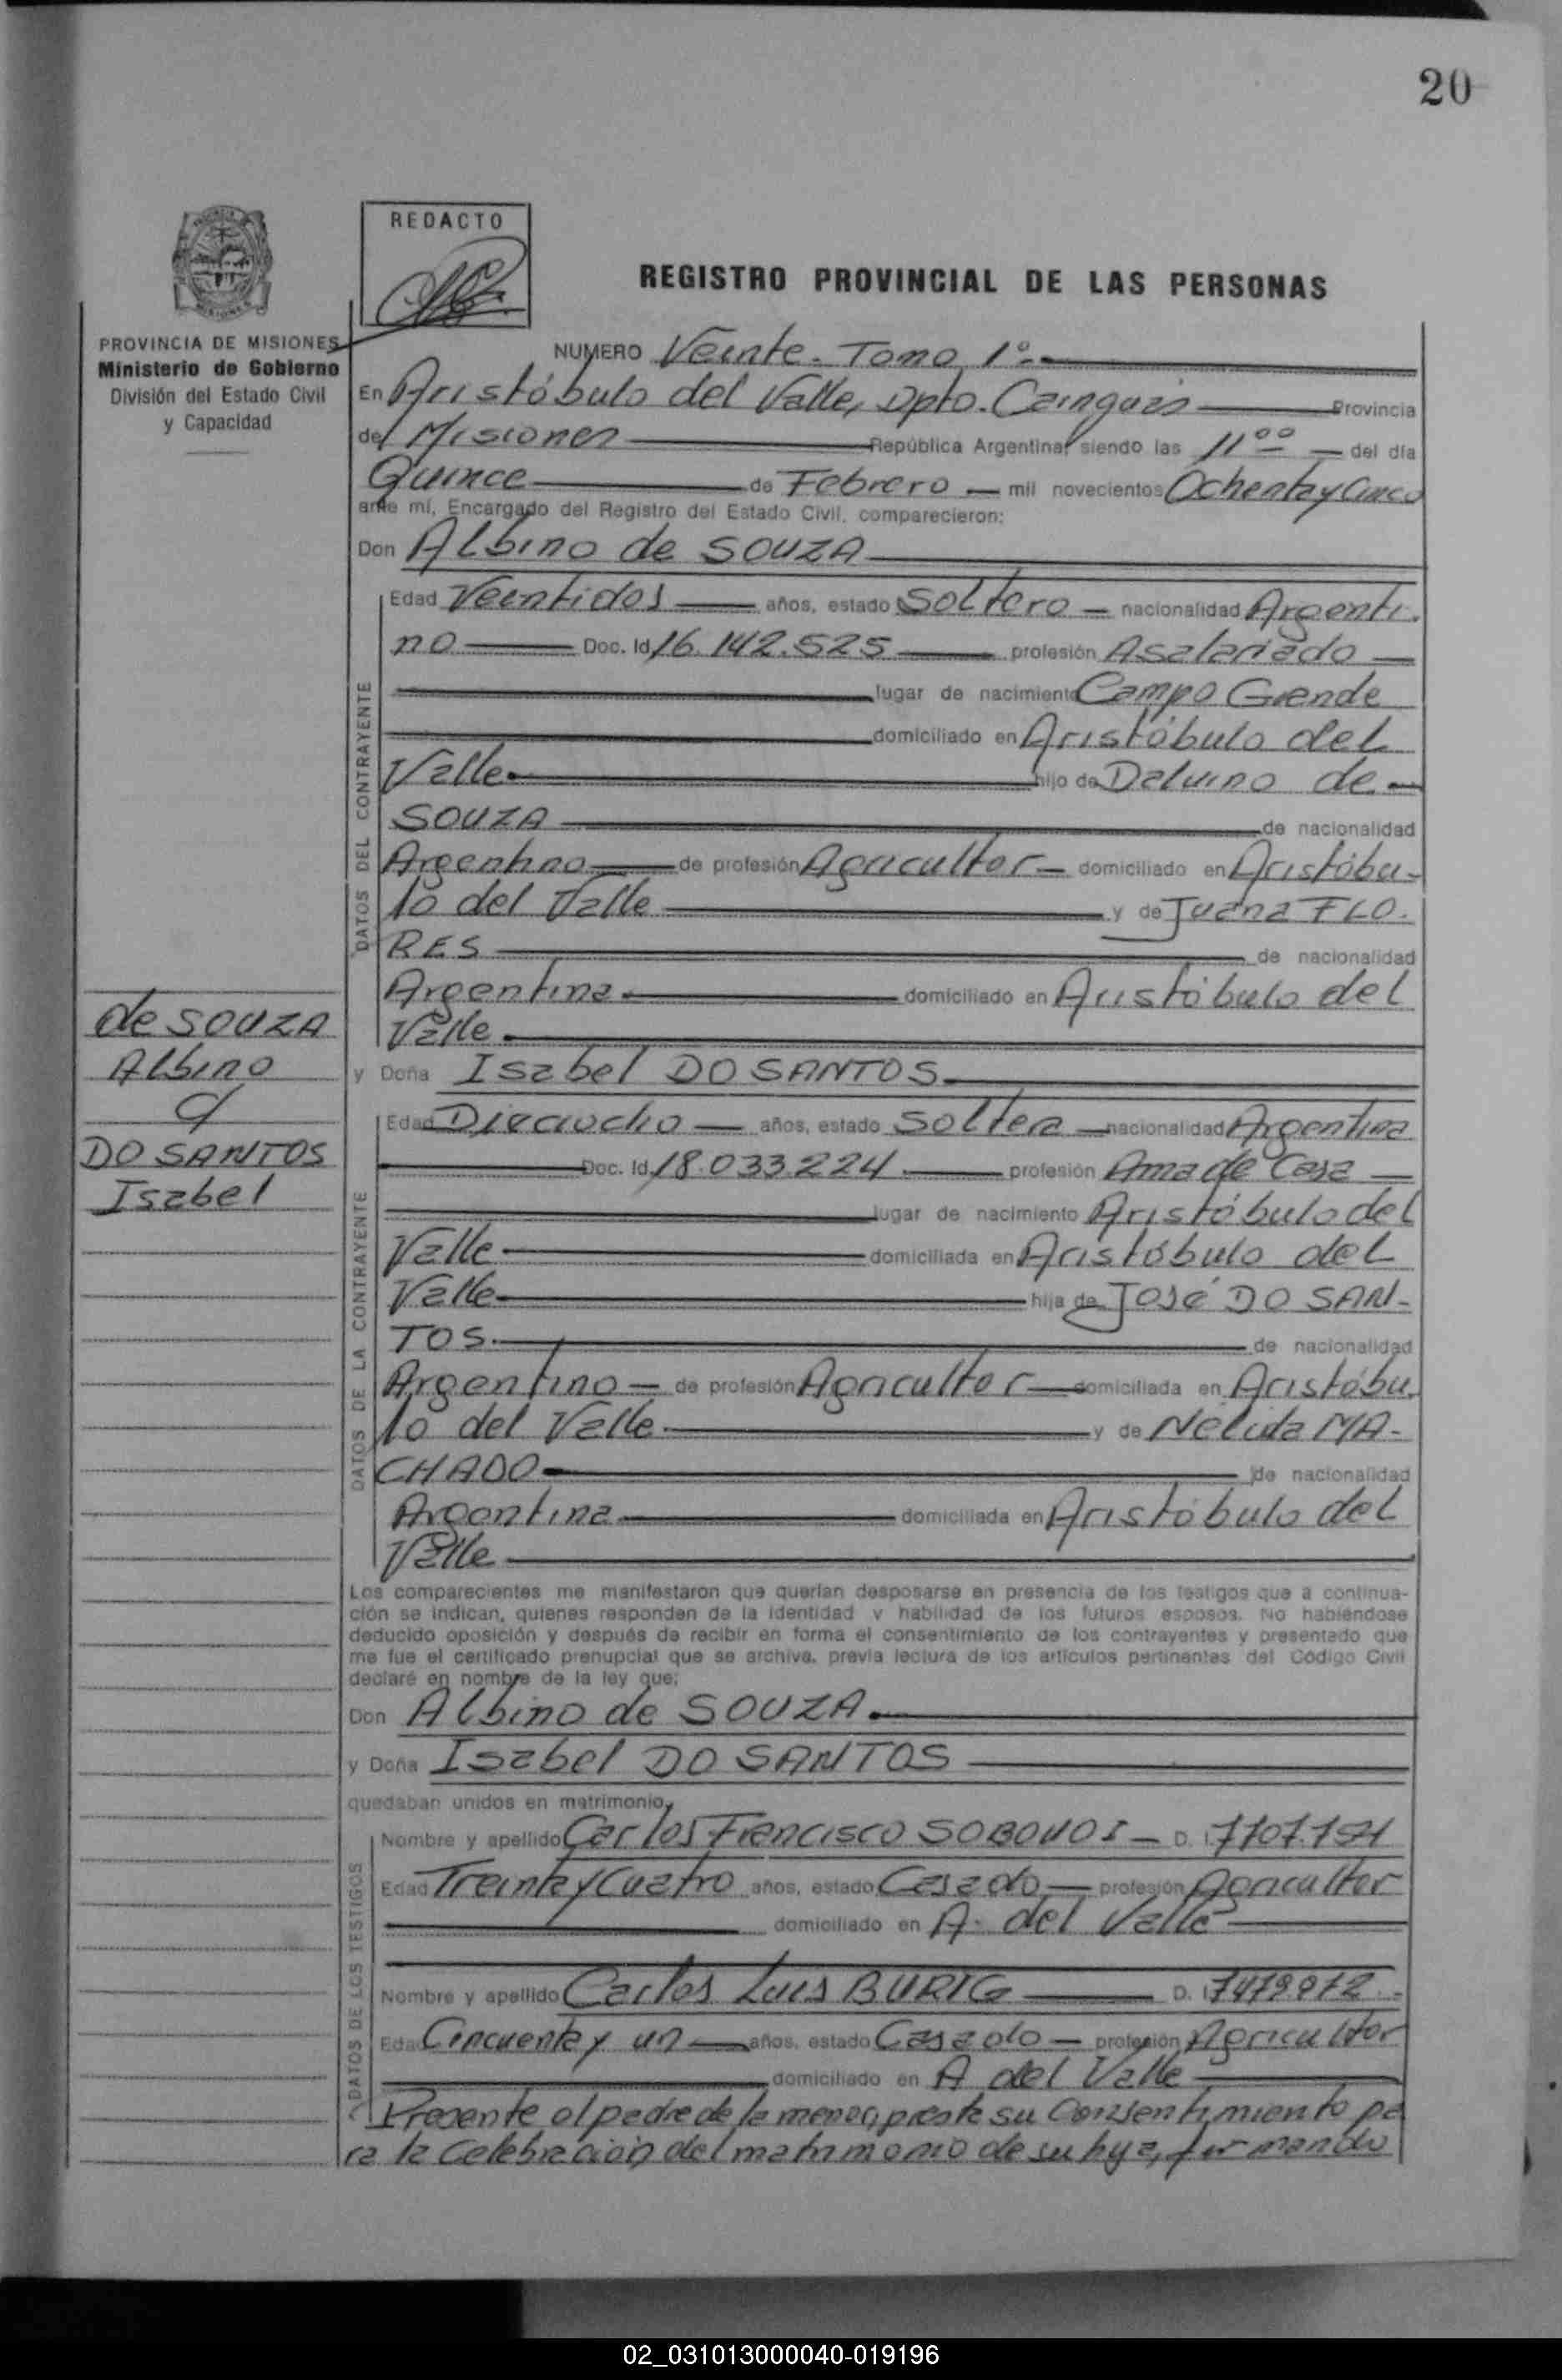 20
REDACTO
REGISTRO PROVINCIAL DE LAS PERSONAS
PROVINCIA DE MISIONES
Ministerio de Gobierno
División del Estado Civil
y Capacidad
NUMERO Veinte. Tomo 1º
En Aristóbulo del Valle, Dpto. Cainguás Provincia
de Misiones República Argentina, siendo las 11 00 del día
Quince de Febrero mil novecientos Ochenta y Cinco
ante mí, Encargado del Registro del Estado Civil, comparecieron:
Don Albino de SOUZA
DATOS DEL CONTRAYENTE
Edad Veintidos años, estado Soltero nacionalidad Argenti-
no Doc. Id. 16.142.525 profesión Asalariado
lugar de nacimiento Campo Grande
domiciliado en Aristóbulo del
Valle hijo de Daluino de
SOUZA de nacionalidad
Argentino de profesión Agricultor domiciliado en Aristóbu-
lo del Valle y de Juana FLO-
RES de nacionalidad
Argentina domiciliado en Aristóbulo del
Valle
de SOUZA
Albino
c/
DO SANTOS
Isabel
y Doña Isabel DO SANTOS
DATOS DE LA CONTRAYENTE
Edad Dieciocho años, estado Soltera nacionalidad Argentina
Doc. Id. 18.033.224 profesión Ama de Casa
lugar de nacimiento Aristóbulo del
Valle domiciliada en Aristóbulo del
Valle hija de José DO SAN-
TOS de nacionalidad
Argentino de profesión Agricultor domiciliada en Aristóbu-
lo del Valle y de Nélida MA-
CHADO de nacionalidad
Argentina domiciliada en Aristóbulo del
Valle
Los comparecientes me manifestaron que querían desposarse en presencia de los testigos que a continua-
ción se indican, quienes responden de la identidad y habilidad de los futuros esposos. No habiéndose
deducido oposición y después de recibir en forma el consentimiento de los contrayentes y presentado que
me fue el certificado prenupcial que se archiva, previa lectura de los artículos pertinentes del Código Civil
declaré en nombre de la ley que:
Don Albino de SOUZA
y Doña Isabel DO SANTOS
quedaban unidos en matrimonio,
DATOS DE LOS TESTIGOS
Nombre y apellido Carlos Francisco D. I.
Edad Treinta y Cuatro años, estado Casado profesión Agricultor
domiciliado en A. del Valle
Nombre y apellido Carlos Luis BURIG D. I.
Edad Cincuenta y un años, estado Casado profesión Agricultor
domiciliado en A del Valle
Presente el padre de la menor, presta su Consentimiento pa
ra la Celebración del matrimonio de su hija, firmando
02_031013000040-019196